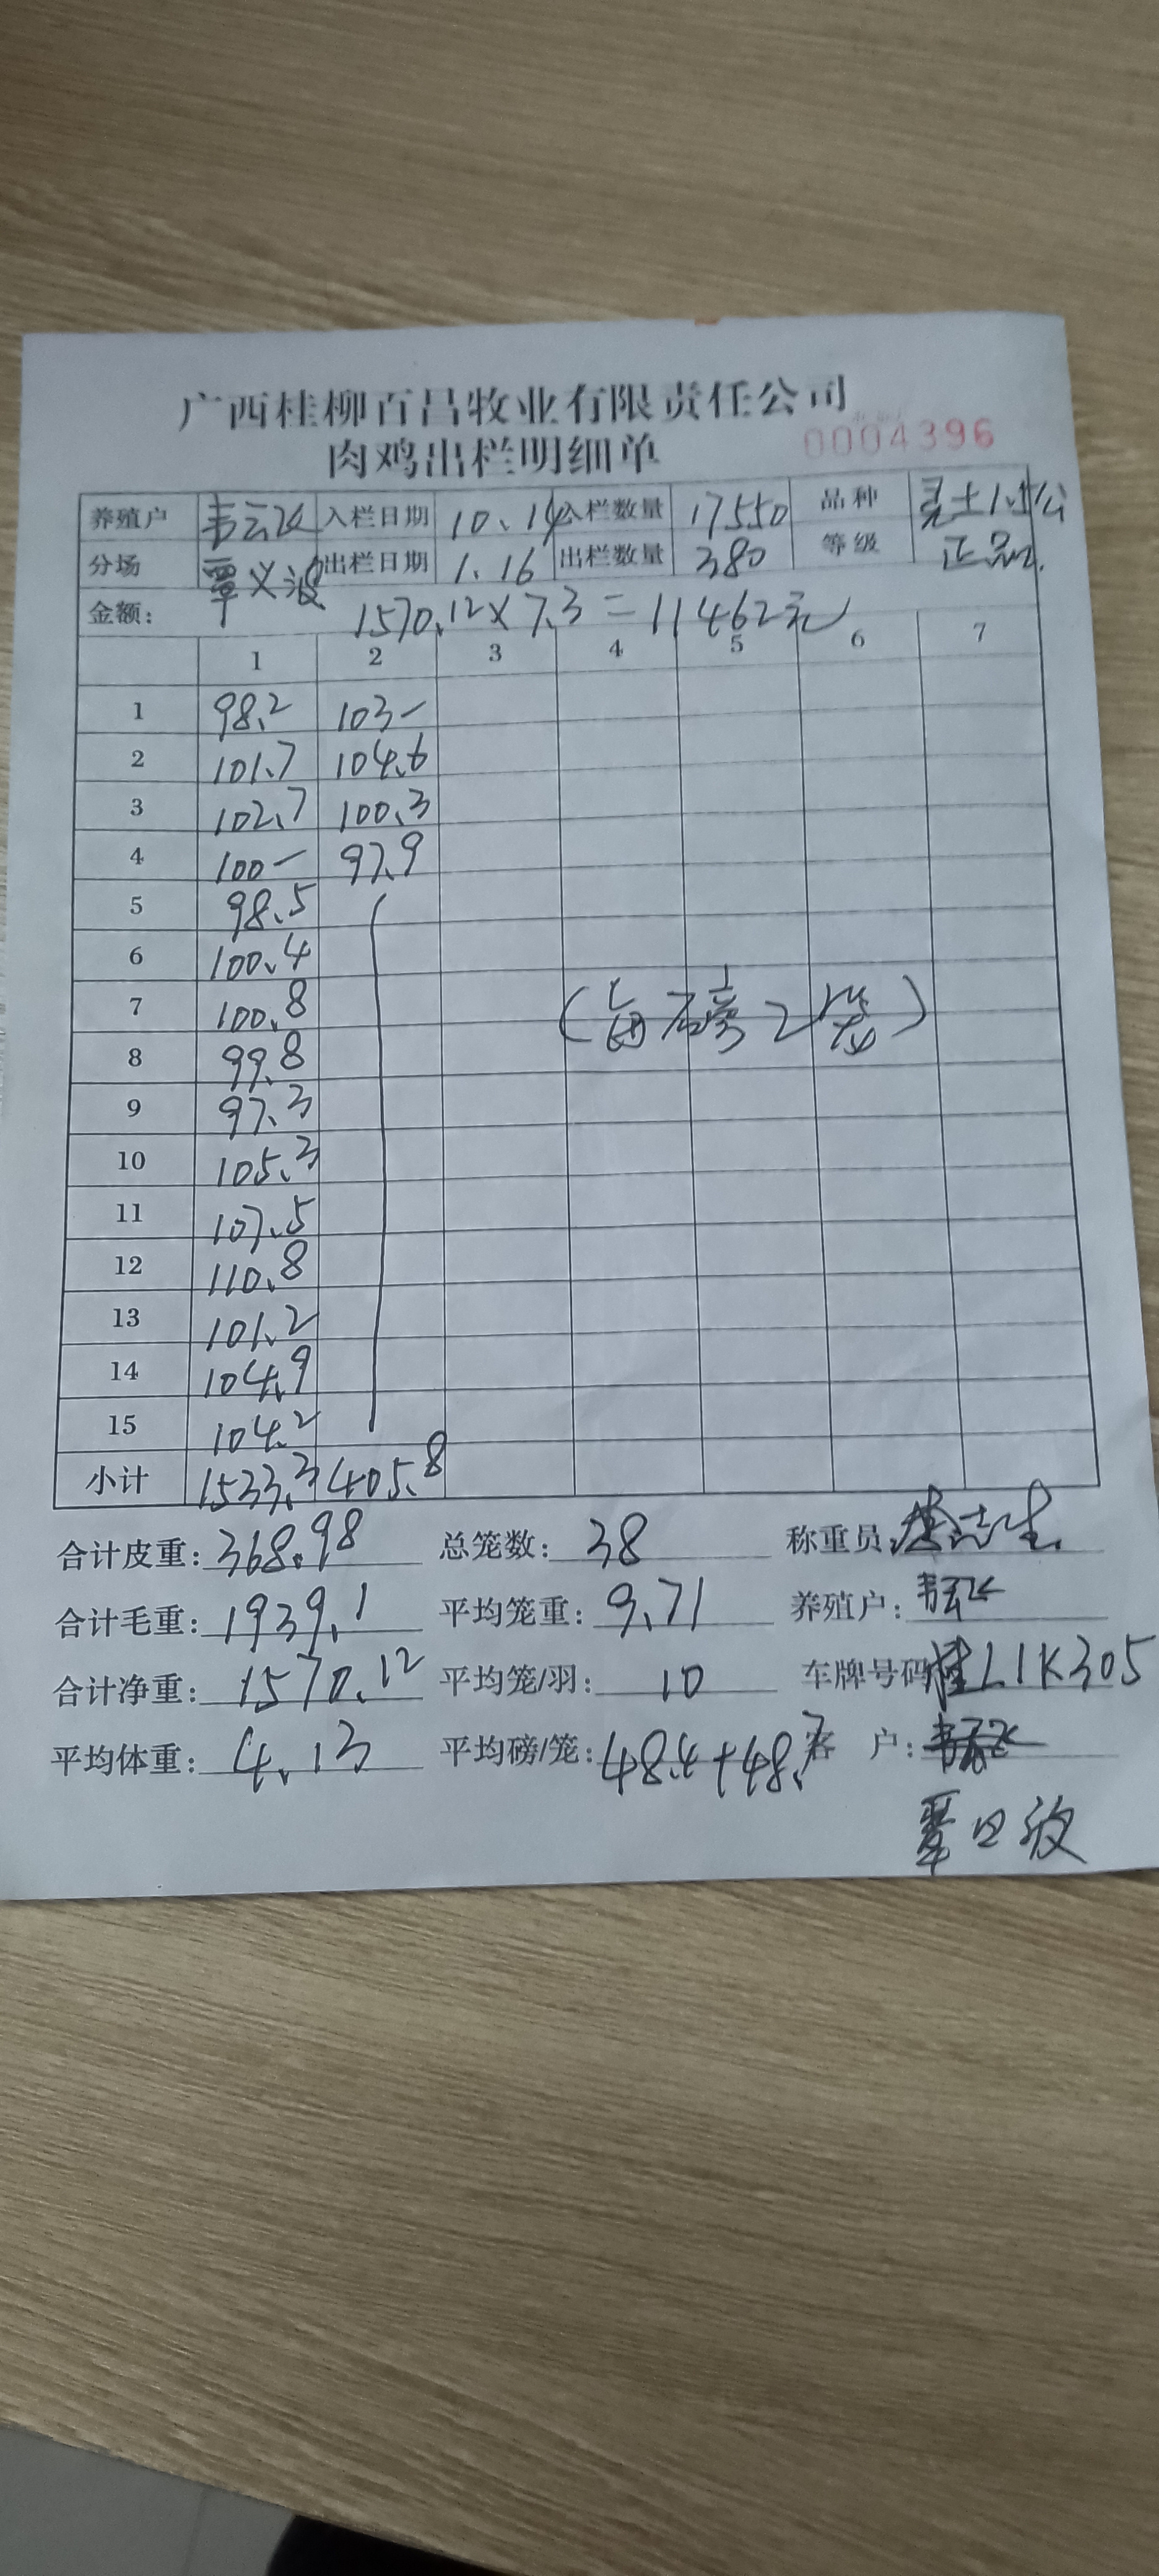 广西桂柳百昌牧业有限责任公司
肉鸡出栏明细单 0004396
养殖户 韦云飞 入栏日期 10.14 入栏数量 17550 品种
分场 覃义波 出栏日期 1.16 出栏数量 380 等级 正品
金额: 1570.12×7.3=11462元
1 2 3 4 5 6 7
1 98.2 103-
2 101.7 104.6
3 102.7 100.3
4 100- 97.9
5 98.5
6 100.4
7 100.8 (每磅2笼)
8 99.8
9 97.3
10 105.3
11 107.5
12 110.8
13 101.2
14 104.9
15 104.2
小计 1533.3 405.8
合计皮重: 368.98 总笼数: 38 称重员
合计毛重: 1939.1 平均笼重: 9.71 养殖户: 韦云飞
合计净重: 1570.12 平均笼/羽: 10 车牌号码 桂L1K305
平均体重: 4.13 平均磅/笼: 48.4+48.7 客 户: